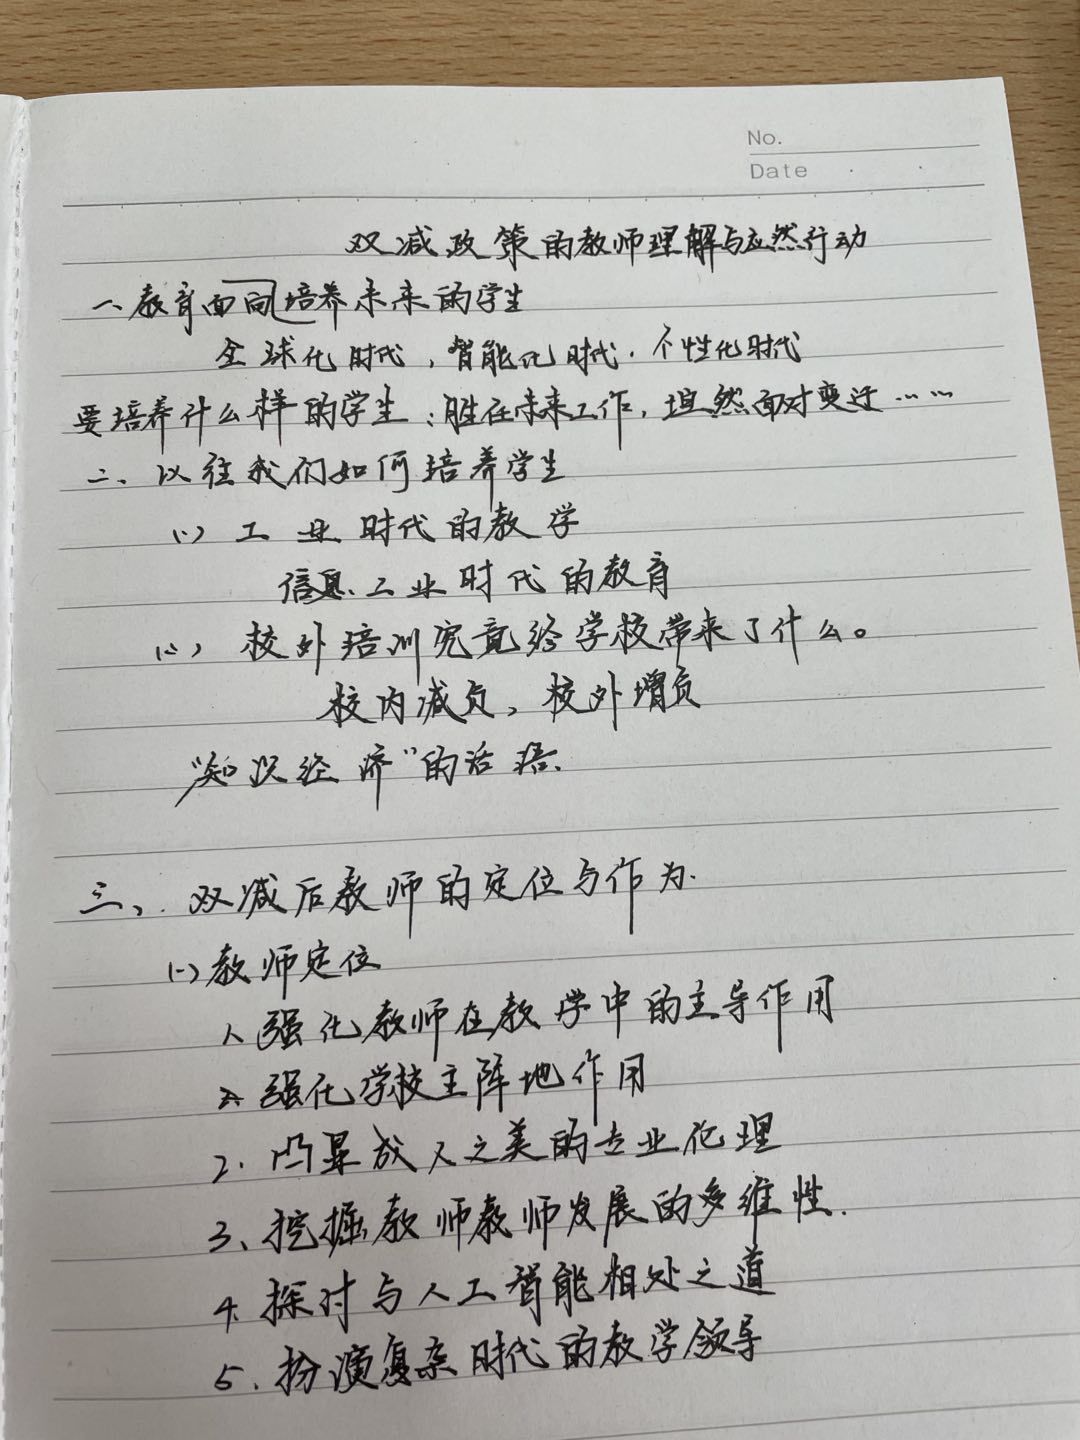 No.
Date
双减政策的教师理解与应然行动
一、教育面向培养未来的学生
全球化时代，智能化时代．个性化时代
要培养什么样的学生：胜任未来工作，坦然面对变迁……
二、以往我们如何培养学生
(一) 工业时代的教学
信息、工业时代的教育
(二) 校外培训究竟给学校带来了什么。
校内减负，校外增负
"知识经济"的话语.
三、双减后教师的定位与作为.
(一) 教师定位
1. 强化教师在教学中的主导作用
强化学校主阵地作用
2. 凸显成人之美的专业伦理
3、挖掘教师教师发展的多维性.
4. 探讨与人工智能相处之道
5. 扮演复杂时代的教学领导